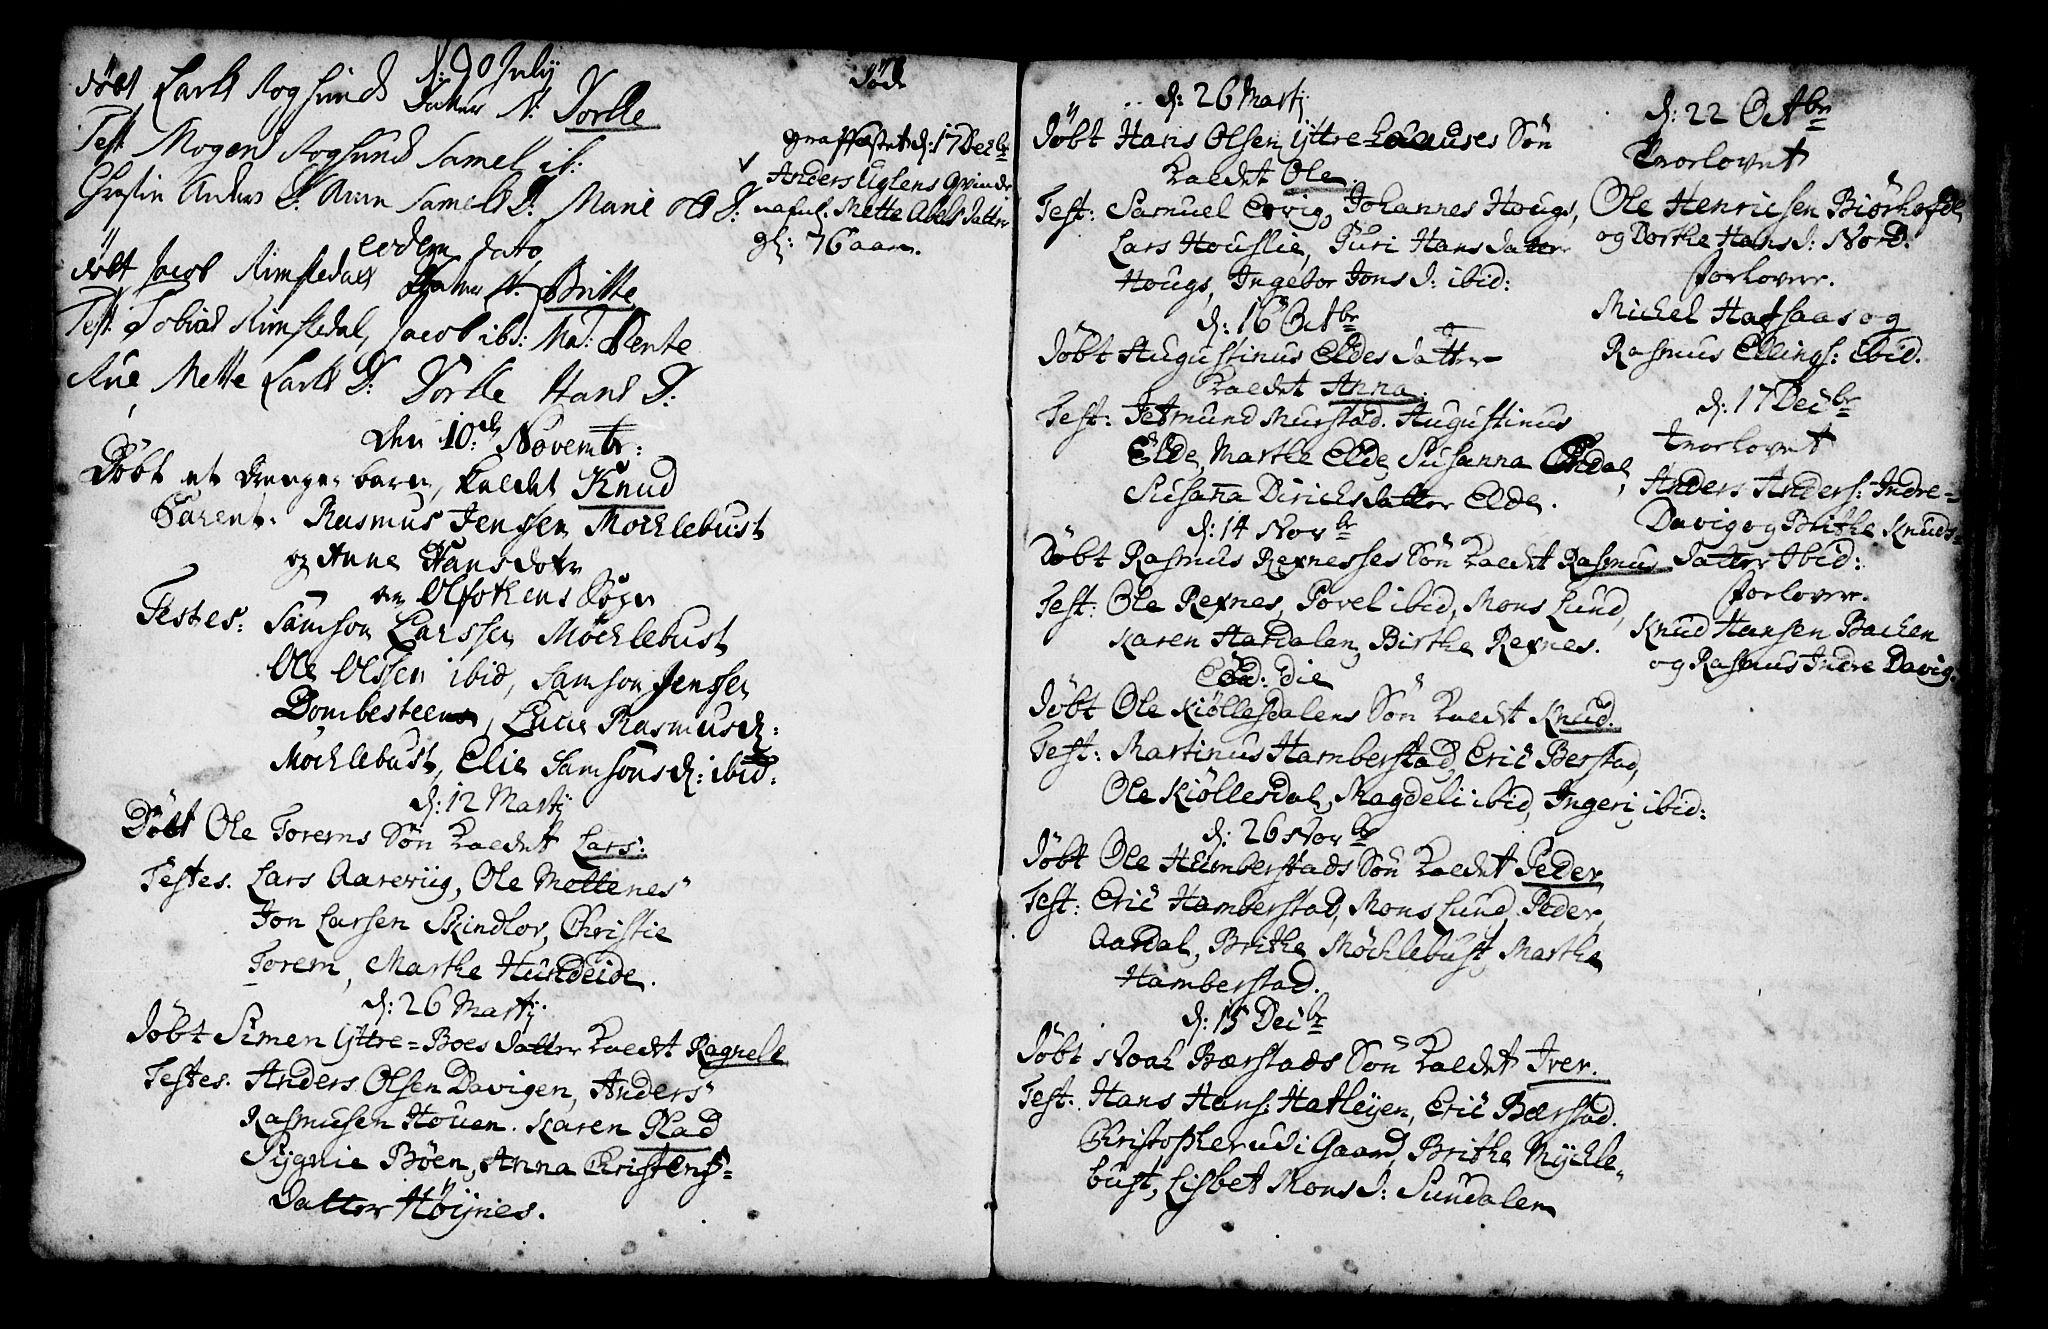 d: 20 July
döbt Lars Rogsund Datter N: Dorthe
Test: Mogens Rogsund Samel ib:
Christin Anders D: Anna Samels D: Marie Ols D:
eodem dato
döbt Jacob Rimstedals Datter N: Britte
Test: Tobias Rimstedal, Jacob ibd: Mad: Bente
Mette Lars D: Dorthe Hans D:
Den 10de Novembr:
Döbt et Drenge barn, kaldet Knud
Parent: Rasmus Jenssen Mochlebust
og Anne Hansdotr
Testes: Samson Larssen Möchlebust
Ole Olssen ibid, Samson Jenssen
Dombesteen, Lucie Rasmusd:
Möchlebust, Elie Samsonsd: ibid:
d: 12 Martj
Döbt Ole Torems Sön kaldet Lars:
Testes. Lars Aareviig, Ole Meltenes
Jon Larsen Skindlov, Christie
Torem, Marthe Hundeide.
d: 26 Martj
döbt Simen Yttre=Boes datter kaldet Ragnele
Testes. Anders Olsen Davigen, Anders
Rasmusen Houen. Karen Rad
Sygnie Böen, Anna Christens=
datter Höynes.
Död
graffæstet d: 17 Decbr
Anders Uglens Qvinde
nafnl. Mette Abels datter
gl: 76 aar.
d: 26 Martj
döbt Hans Olsen Yttre Sön
kaldet Ole.
Test: Samuel Ervig, Johannes Hougs,
Lars Houslie, Guri Hans datter
Hougs, Ingebor Jons d: ibid:
d: 16 Octbr
döbt Augustinus Eldes datter
kaldet Anna.
Test: Jetmund Murstad. Augustinus
Elde, Marthe Elde, Susanna Endal,
Susanna Dirichsdatter Elde.
d: 14 Novbr
Döbt Rasmus Rexnesses Sön kaldet Rasmus
Test: Ole Rexnes, Povel ibid, Mons Lund,
Karen Hardalen, Birthe Rexnes.
Eod: die
döbt Ole Kiöllesdalens Sön kaldet Knud.
Test: Martinus Hamberstad, Eric Berstad,
Ole Kiöllesdal, Magdeli ibid, Ingeri ibid:
d: 26 Novbr
döbt Ole Humberstads Sön kaldet Peder,
Test: Eric Hamberstad, Mons Lund, Peder
Aardal, Brithe Möchlebust, Marthe
Hamberstad.
d: 15 Decbr
döbt Noah Bærstads Sön kaldet Iver.
Test: Hans Hans: Hatleyen, Eric Bærstad.
Christopher udi Gaard, Brithe Myckle-
bust, Lisbet Mons d: Sundalen
d: 22 Octbr
Troelovet
Ole Henricsen
og Dorthe Hans d: Nord:
forlover.
Michel og
Rasmus Ellings: ibid.
d: 17 Decbr
troelovet
Anders Anders: Indre=
Davig og Brithe Knuds=
datter Ibid:
forlover.
Knud Hansen Bachen
og Rasmus Indre Davig.